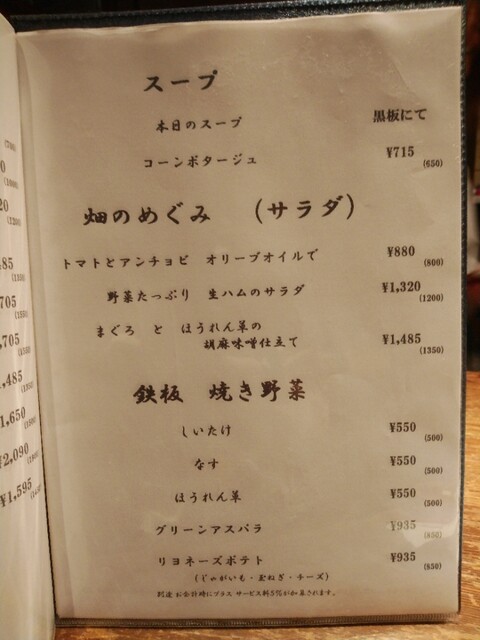 スープ
本日のスープ 黒板にて
コーンポタージュ ¥715 (650)
畑のめぐみ (サラダ)
トマトとアンチョビ オリーブオイルで ¥880 (800)
野菜たっぷり 生ハムのサラダ ¥1,320 (1200)
まぐろ と ほうれん草の
胡麻味噌仕立て ¥1,485 (1350)
鉄板 焼き野菜
しいたけ ¥550 (500)
なす ¥550 (500)
ほうれん草 ¥550 (500)
グリーンアスパラ ¥935 (850)
リヨネーズポテト ¥935 (850)
(じゃがいも・玉ねぎ・チーズ)
別途 お会計時にプラス サービス料5%が加算されます。
,485
,705
,705
,485
1,650
¥2,090
¥1,595